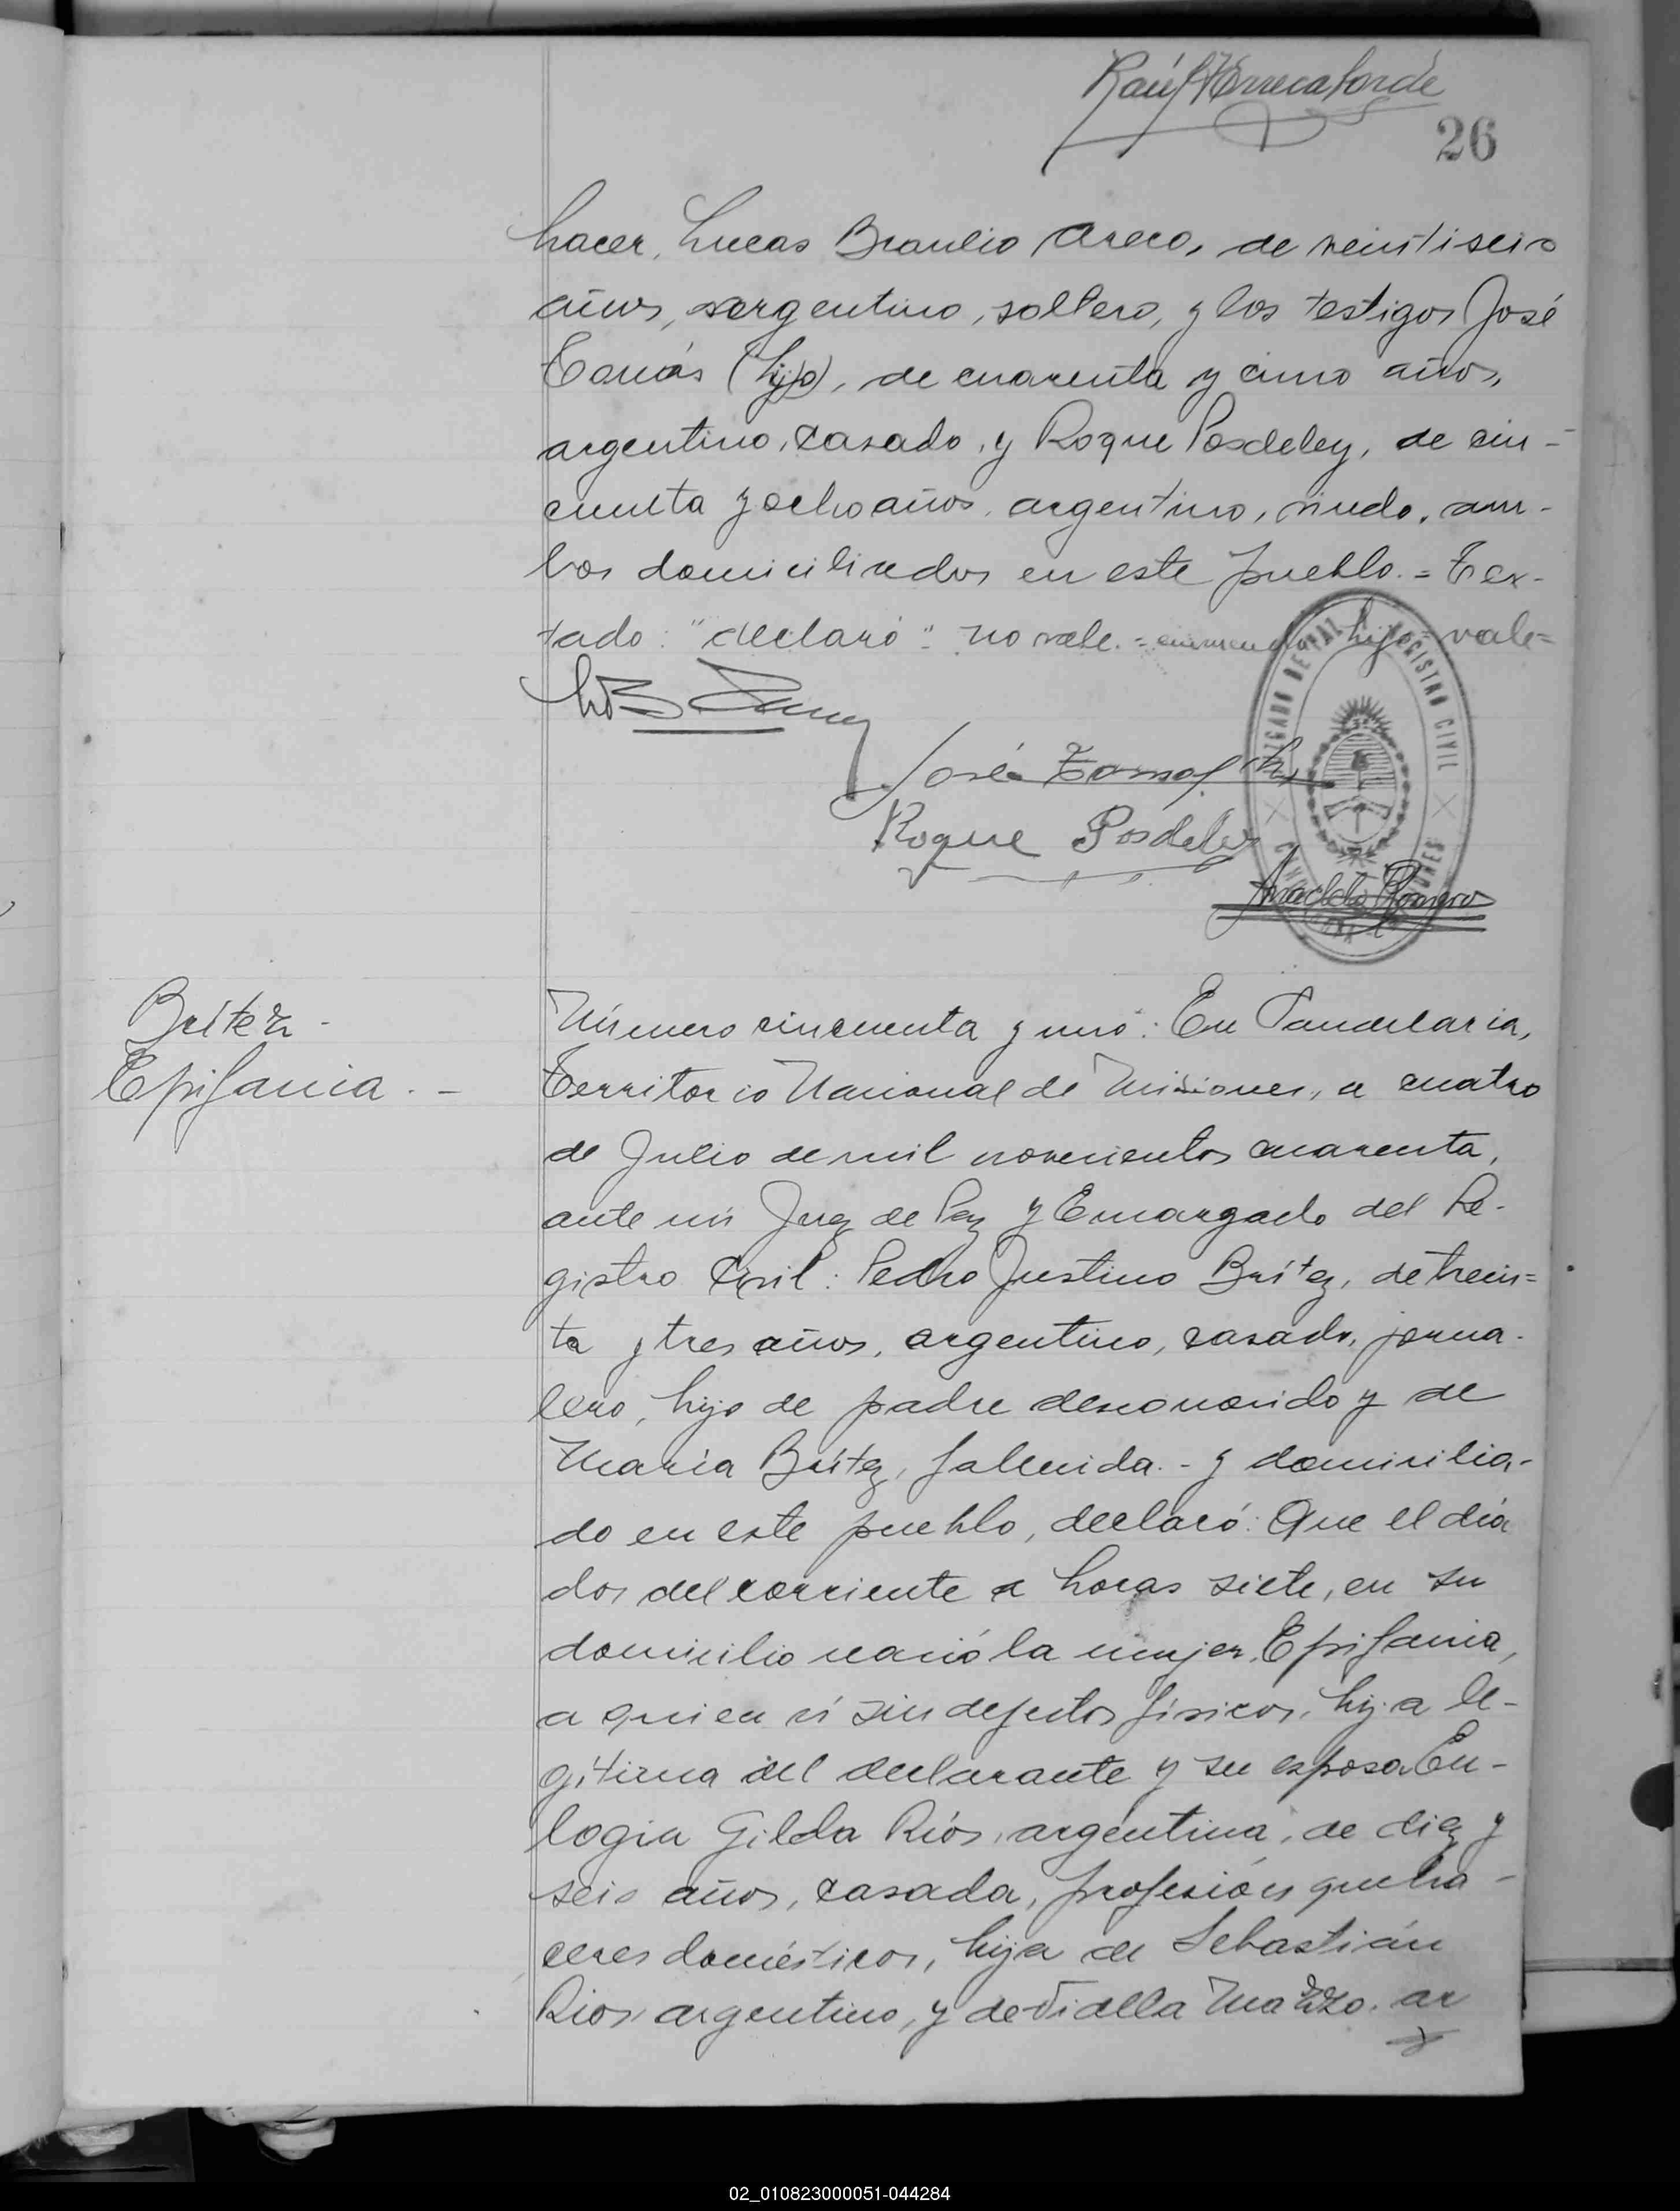 Raúl Errecaborde
26
hacer, Lucas Braulio Areco, de veintiseis
años, argentino, soltero, y los testigos José
Tomás (hijo), de cuarenta y cinco años,
argentino, casado, y Roque Posdeley, de cin-
cuenta y ocho años, argentino, viudo, am-
bos domiciliados en este pueblo.= Tex-
tado: "declaró": no vale.= enmendado hijo= vale=
José Tomas (h)
Roque Posdeley
JUZGADO DE PAZ REGISTRO CIVIL
Anacleto Romero
Britez -
Epifania. -
Número cincuenta y uno: En Candelaria,
Territorio Nacional de Misiones, a cuatro
de Julio de mil novecientos cuarenta,
ante mi Juez de Paz y Encargado del Re-
gistro Civil: Pedro Justino Brítez, de trein=
ta y tres años, argentino, casado, jorna-
lero, hijo de padre desconocido y de
María Brítez, fallecida.- y domicilia-
do en este pueblo, declaró: Que el día
dos del corriente a horas siete, en su
domicilio nació la mujer, Epifania,
a quien ví sin defectos físicos, hija le-
gitima del declarante y su esposa Eu-
logia Gilda Ríos, argentina, de diez y
seis años, casada, profesión queha-
ceres domésticos, hija de Sebastián
Rios, argentino, y de Vidella Mazzo, ar
02_010823000051-044284